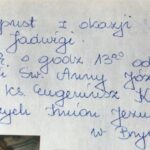 pust z okazji
Jadwigi.
o godz 13⁰⁰ od
Św. Anny Józ
ks. Eugeniusz K
zych Imion Jezu
w Bry